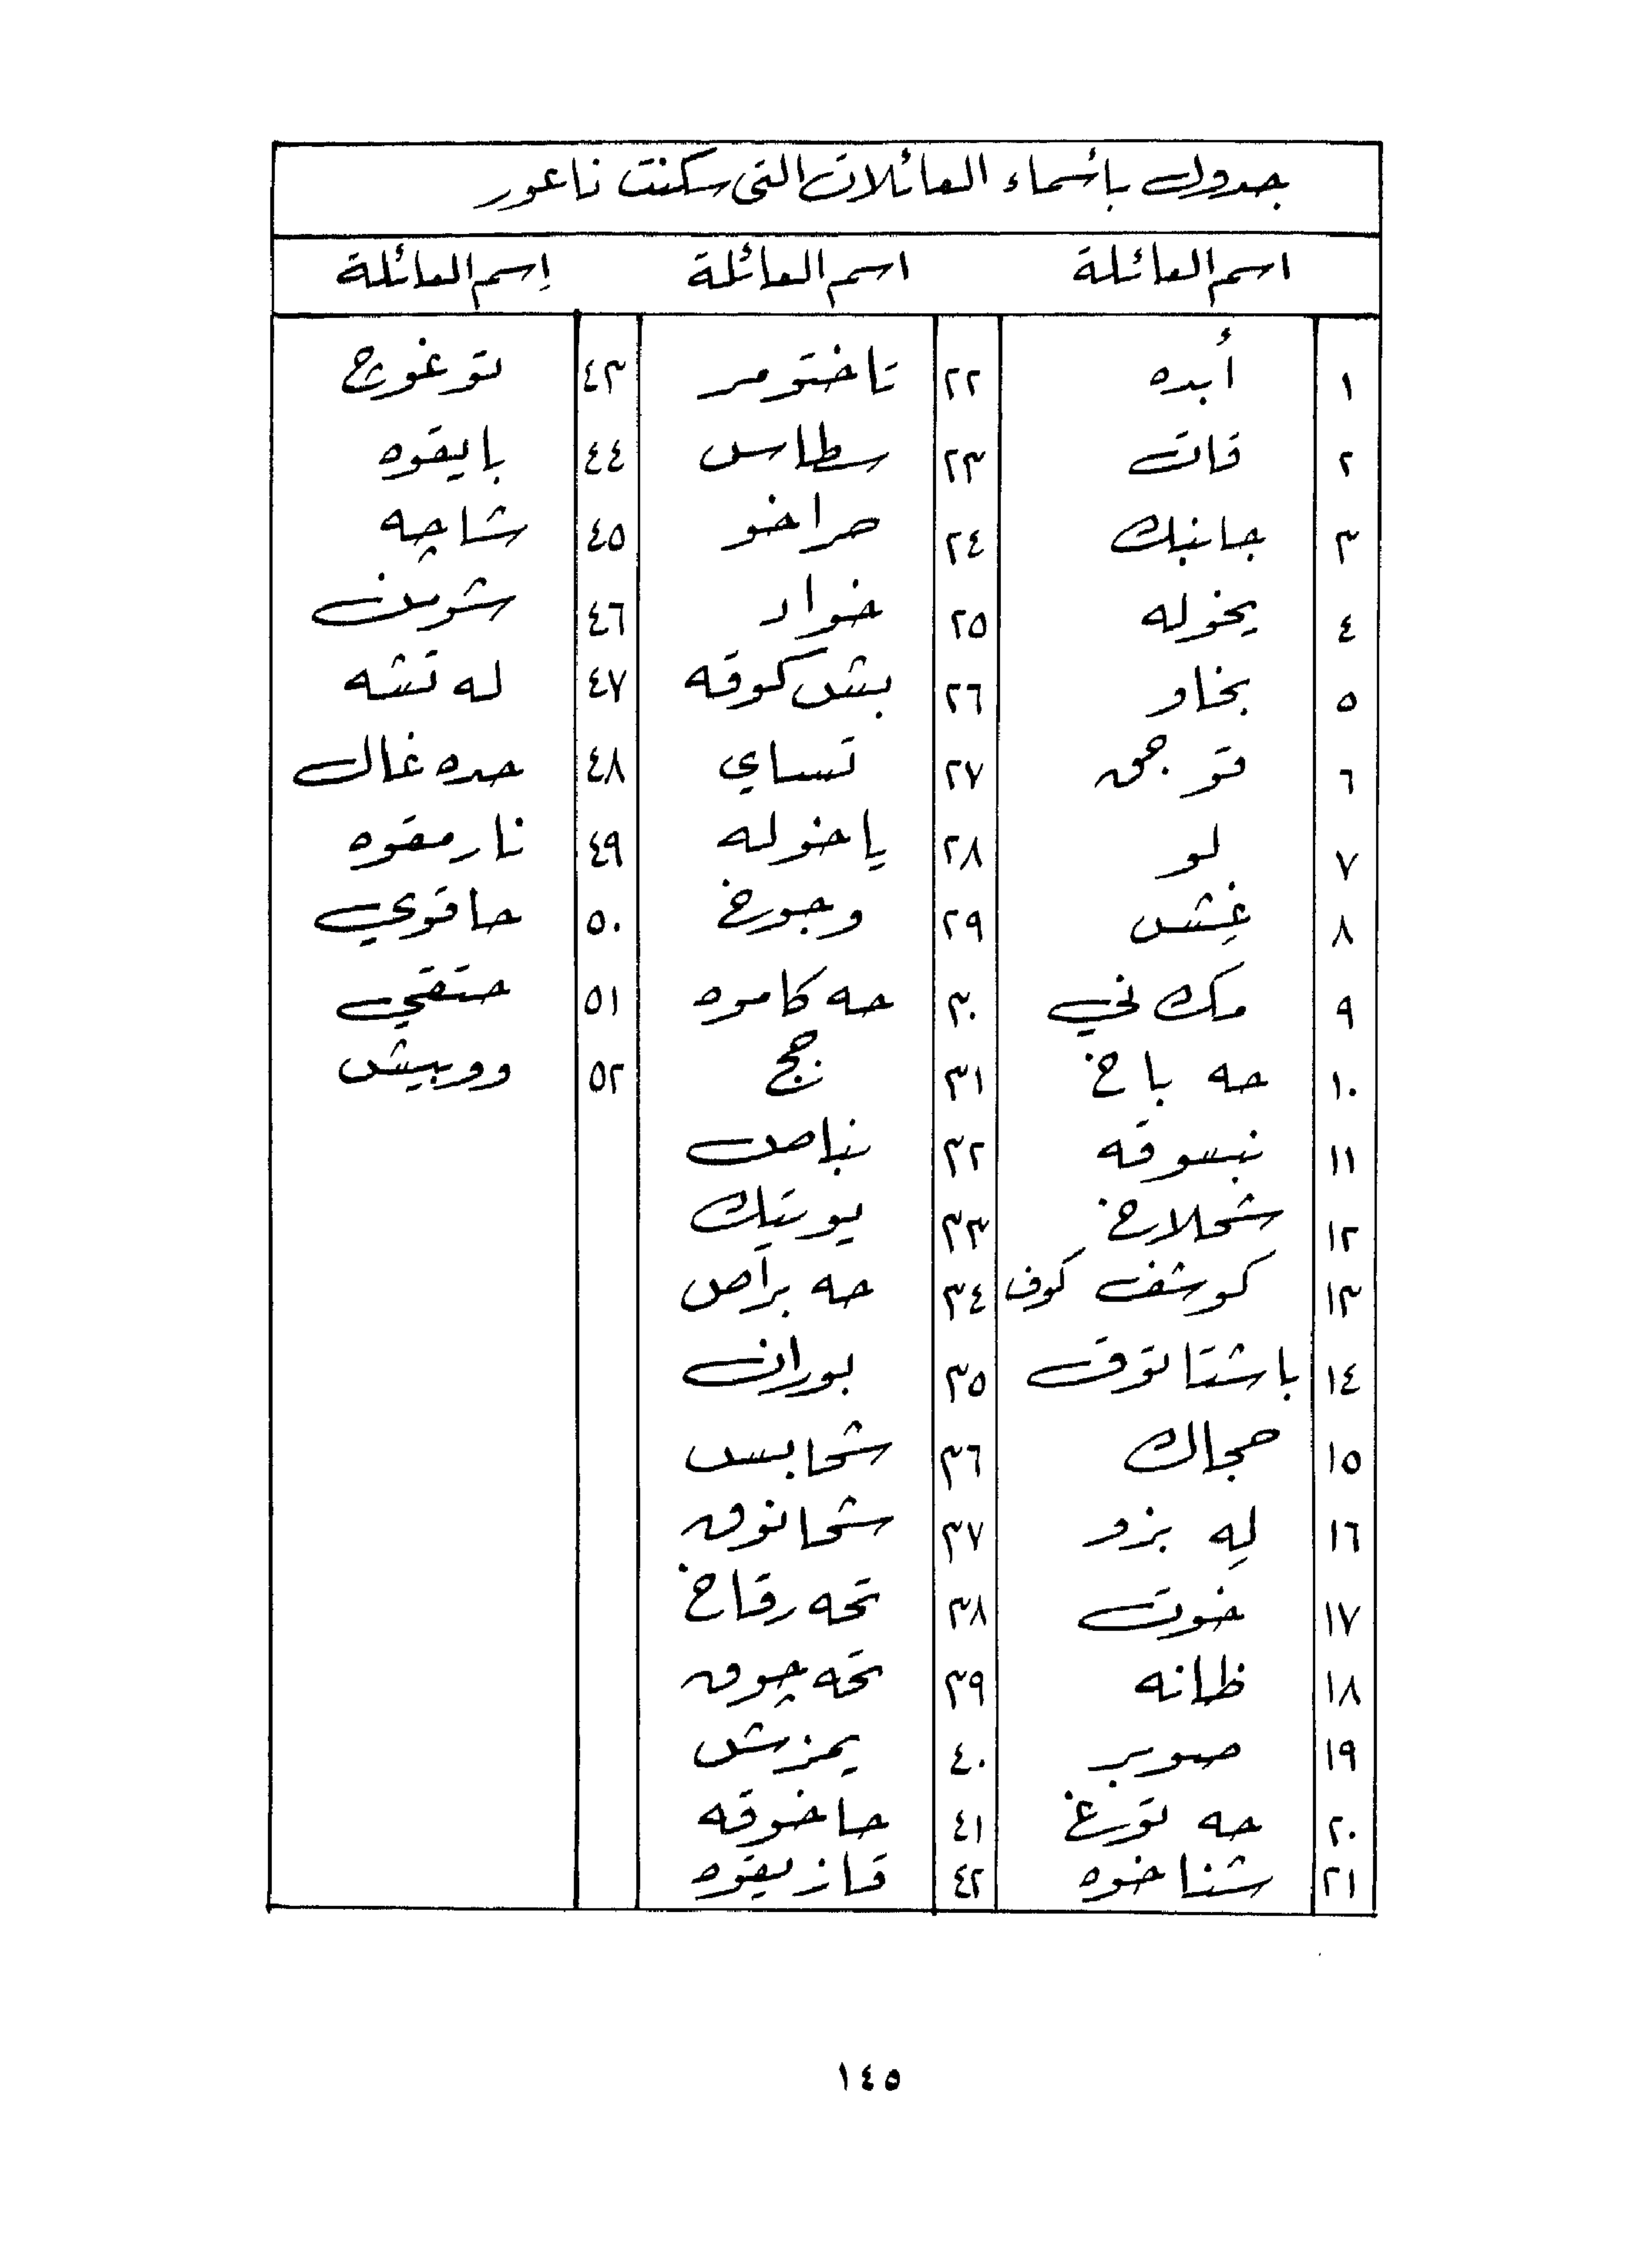 جدول بأسماء العائلات التى سكنت ناعور
اسم العائلة اسم العائلة إسم العائلة
١ أبده ٢٢ تاختومر ٤٣ توغوج
٢ قات ٢٣ سطاس ٤٤ بايقوه
٣ جانبك ٢٤ صراخو ٤٥ شاچه
٤ يخوله ٢٥ خواد ٤٦
٥ بخاو ٢٦ بش كوقه ٤٧ له تشه
٦ قوجمق ٢٧ تساي ٤٨ حده غال
٧ لو ٢٨ ياخوله ٤٩ نارمقوه
٨ غِش ٢٩ وجورخ ٥٠ حاقوي
٩ مك ني ٣٠ حه كاموه ٥١ حتقي
١٠ حه باخ ٣١ حج ٥٢ ووبيش
١١ نبسوقه ٣٢ بناصك
١٢ شحلارخ ٣٣ يوريتك
١٣ كوشف كوف ٣٤ حه براص
١٤ باشتا توق ٣٥ بوران
١٥ حجاك ٣٦ شحابس
١٦ له بزو ٣٧ شحانوق
١٧ خوت ٣٨ تحه رقاخ
١٨ ظانه ٣٩ تحه چوق
١٩ صوبر ٤٠ يمزش
٢٠ حه تورغ ٤١ حاخوقه
٢١ شناخوه ٤٢ قازيقوه
١٤٥